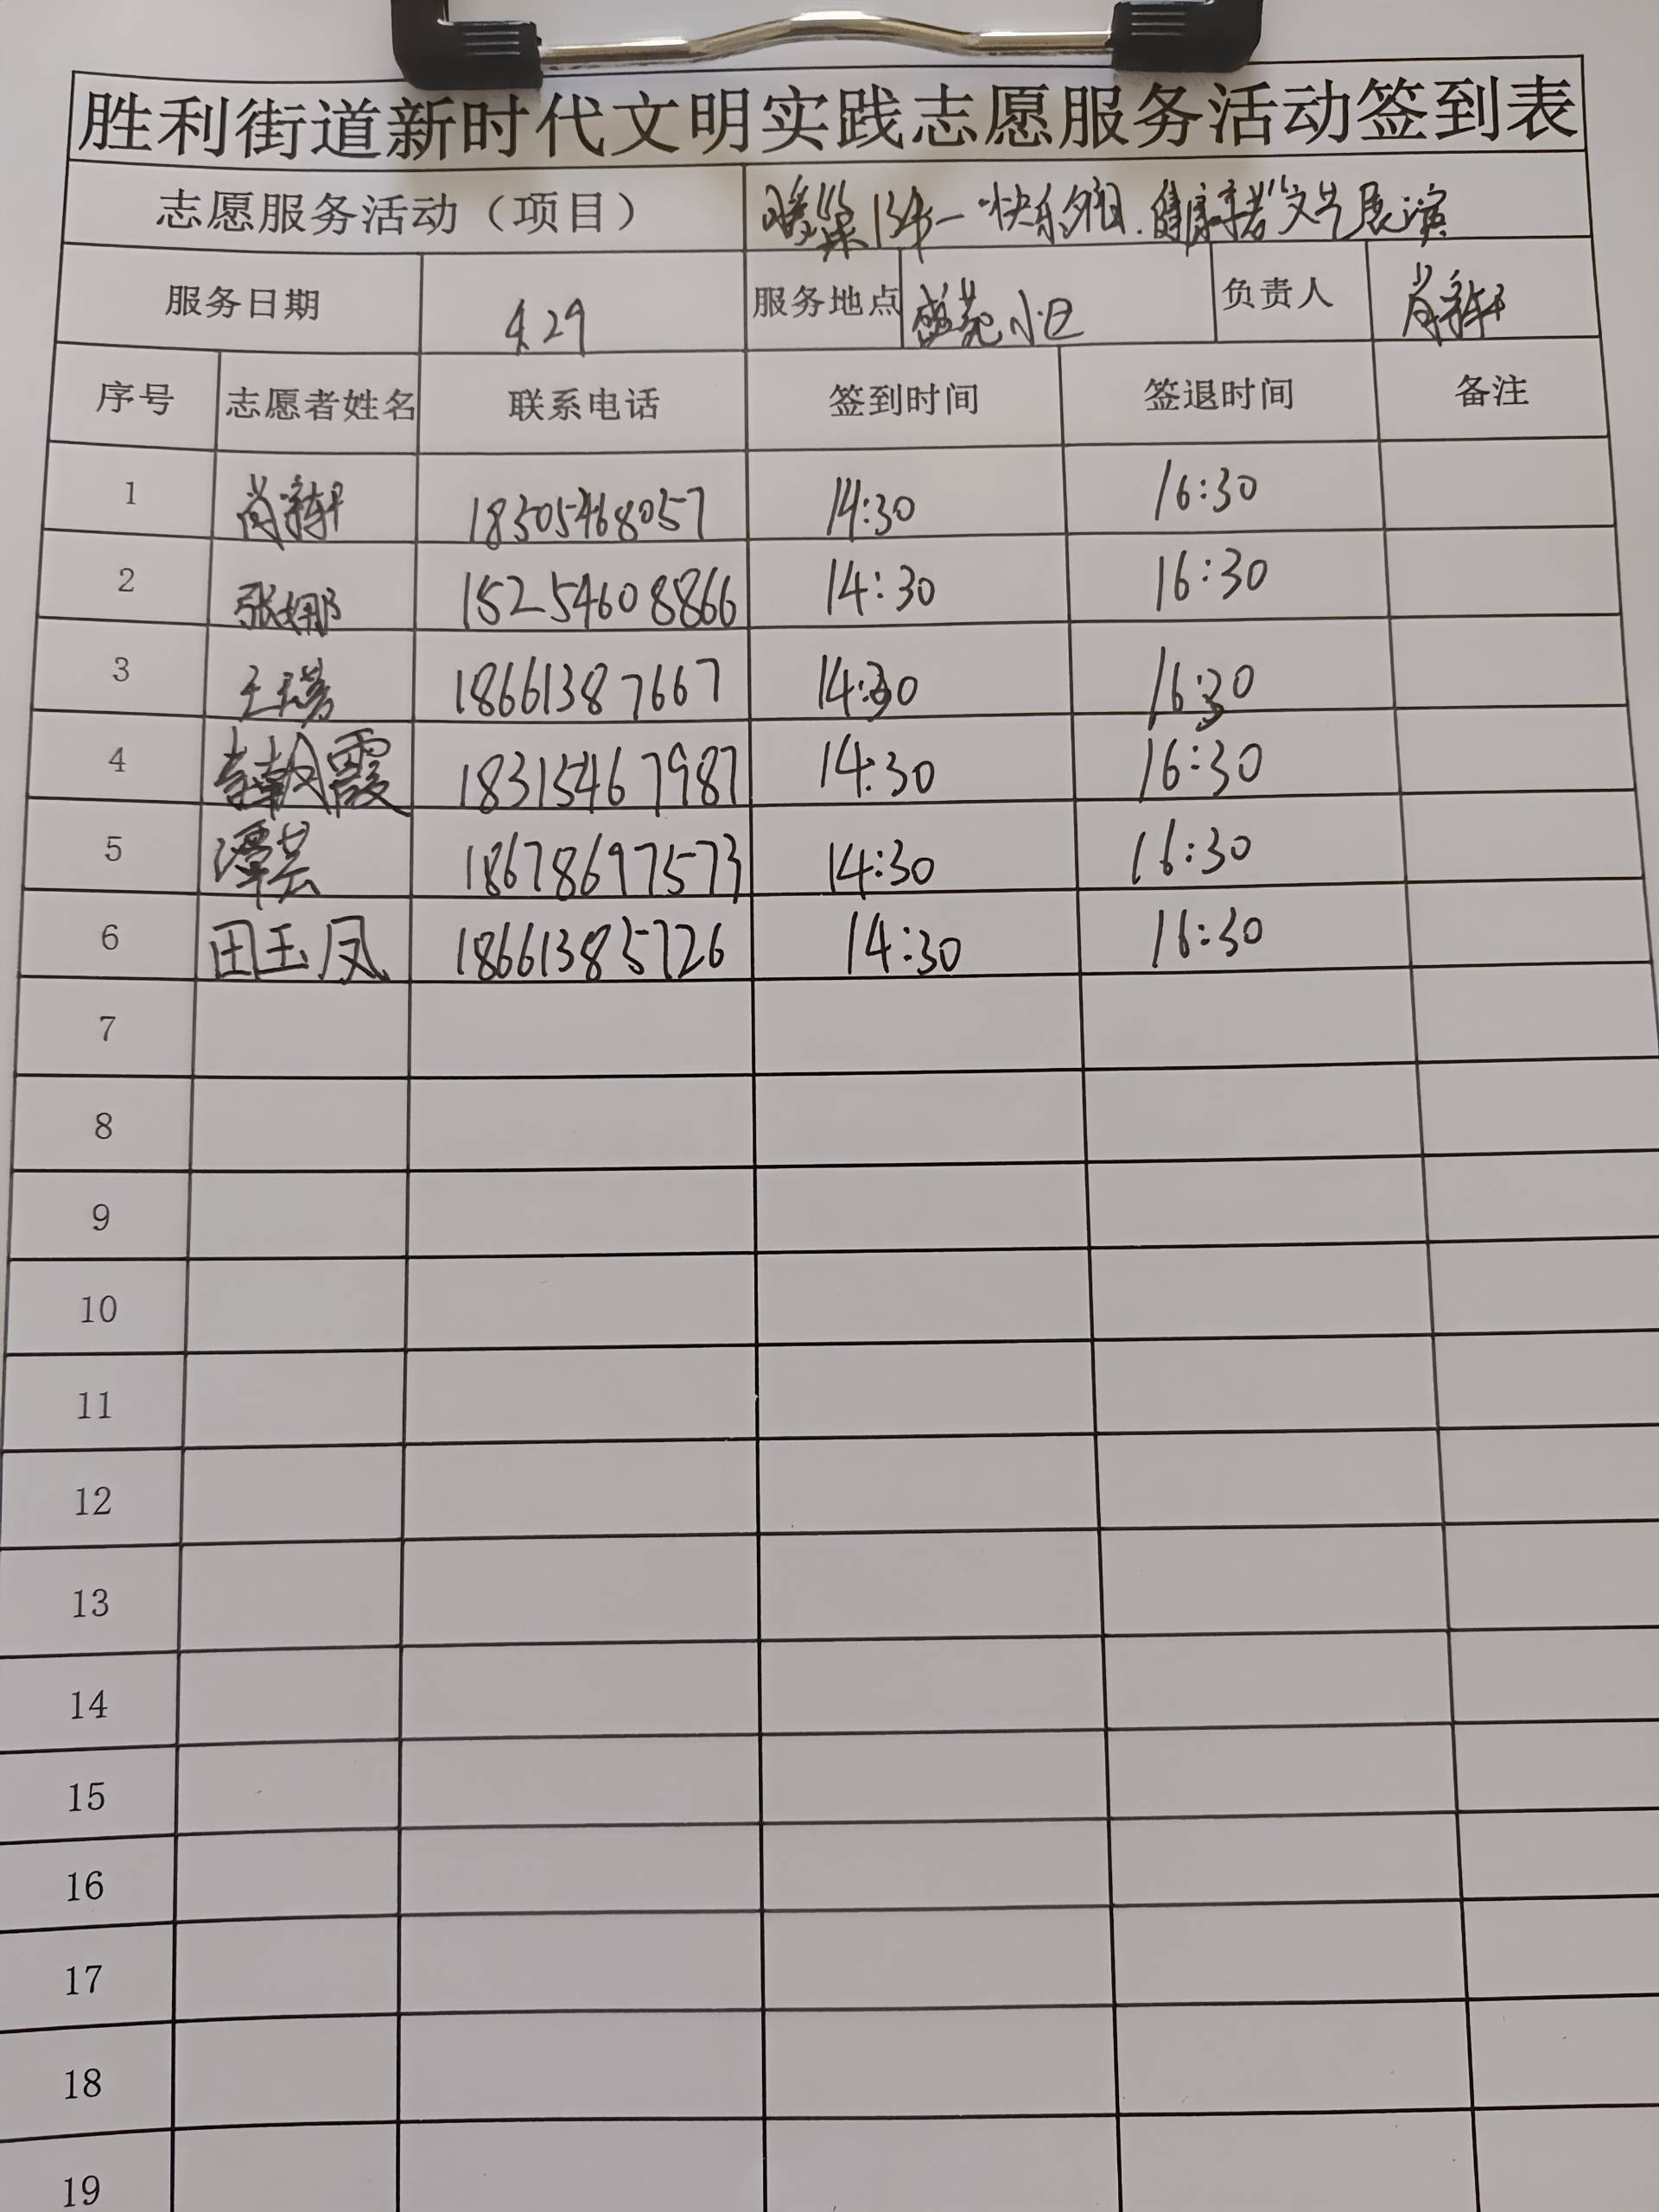 胜利街道新时代文明实践志愿服务活动签到表
志愿服务活动（项目） 暖巢 一"快乐夕阳.健康 者"文艺展演
服务日期 4.29 服务地点 盛苑小区 负责人 肖
序号 志愿者姓名 联系电话 签到时间 签退时间 备注
1 肖 18305468057 14:30 16:30
2 张娜 15254608866 14:30 16:30
3 王 18661387667 14:30 16:30
4 霞 18315467987 14:30 16:30
5 谭芸 18678697573 14:30 16:30
6 田玉凤 18661385726 14:30 16:30
7
8
9
10
11
12
13
14
15
16
17
18
19